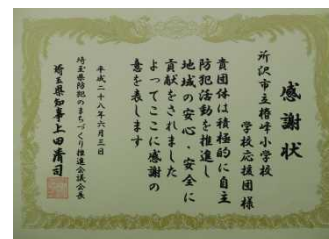 感謝状
所沢市立椿峰小学校
学校応援団様
貴団体は積極的に自主
防犯活動を推進し
地域の安心・安全に
貢献をされました
よってここに感謝の
意を表します
平成二十八年六月三日
埼玉県防犯のまちづくり推進会議会長
埼玉県知事上田清司